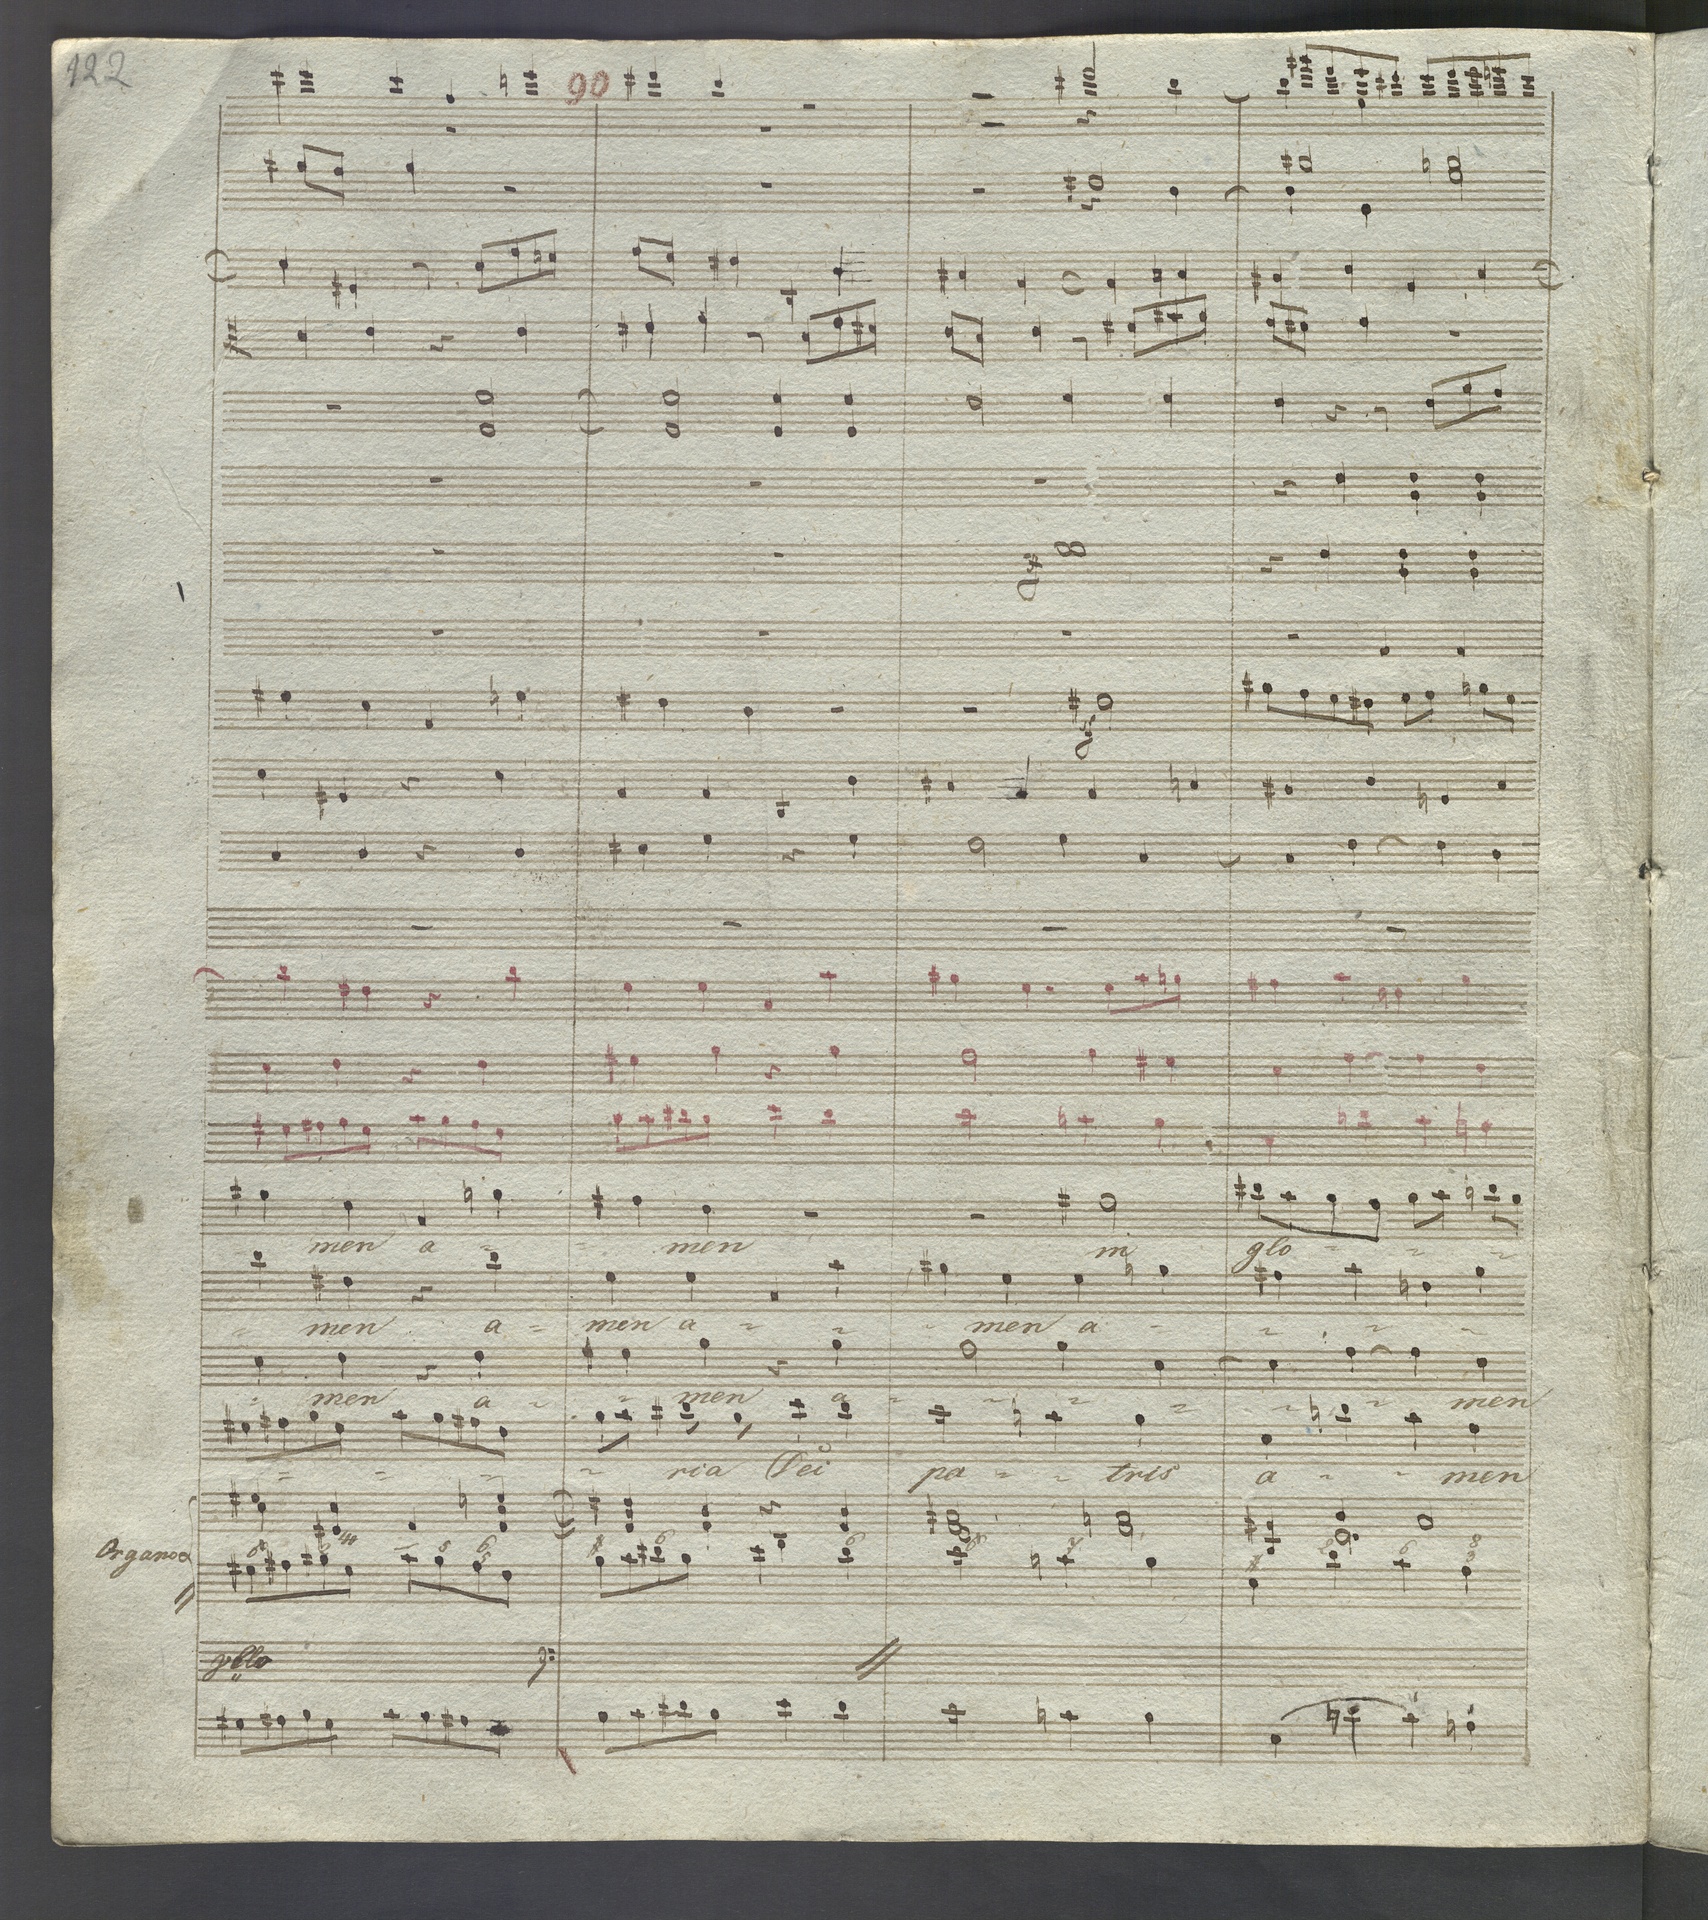 122
90
men a - - men in glo - - -
- men a - men a - - - men a - - - -
- men a - - men a - - - - - - men
- - - - ria Dei pa - - tris a - - men
Organo